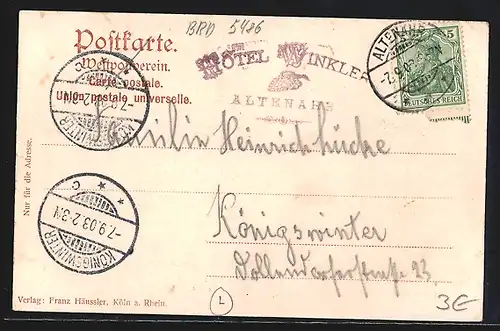 BRD 5486
Postkarte.
Weltpostverein.
Carte postale.
Union postale universelle.
HOTEL WINKLER
ALTENAHR
ALTENAHR
7.9.03
5
DEUTSCHES REICH
KÖNIGSWINTER
-7.9.03.2-3N
Familie Heinrichlücke
Königswinter
Dollendorferstraße 23.
Nur für die Adresse.
KÖNIGSWINTER
-7.9.03.2-3N
* * c
Verlag: Franz Häussler, Köln a. Rhein.
L
3€